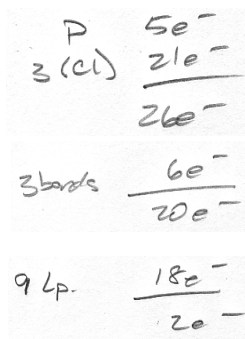 P 5e⁻
3 (Cl) 21e⁻
26e⁻
3 bonds 6e⁻
20e⁻
9 Lp. 18e⁻
2e⁻